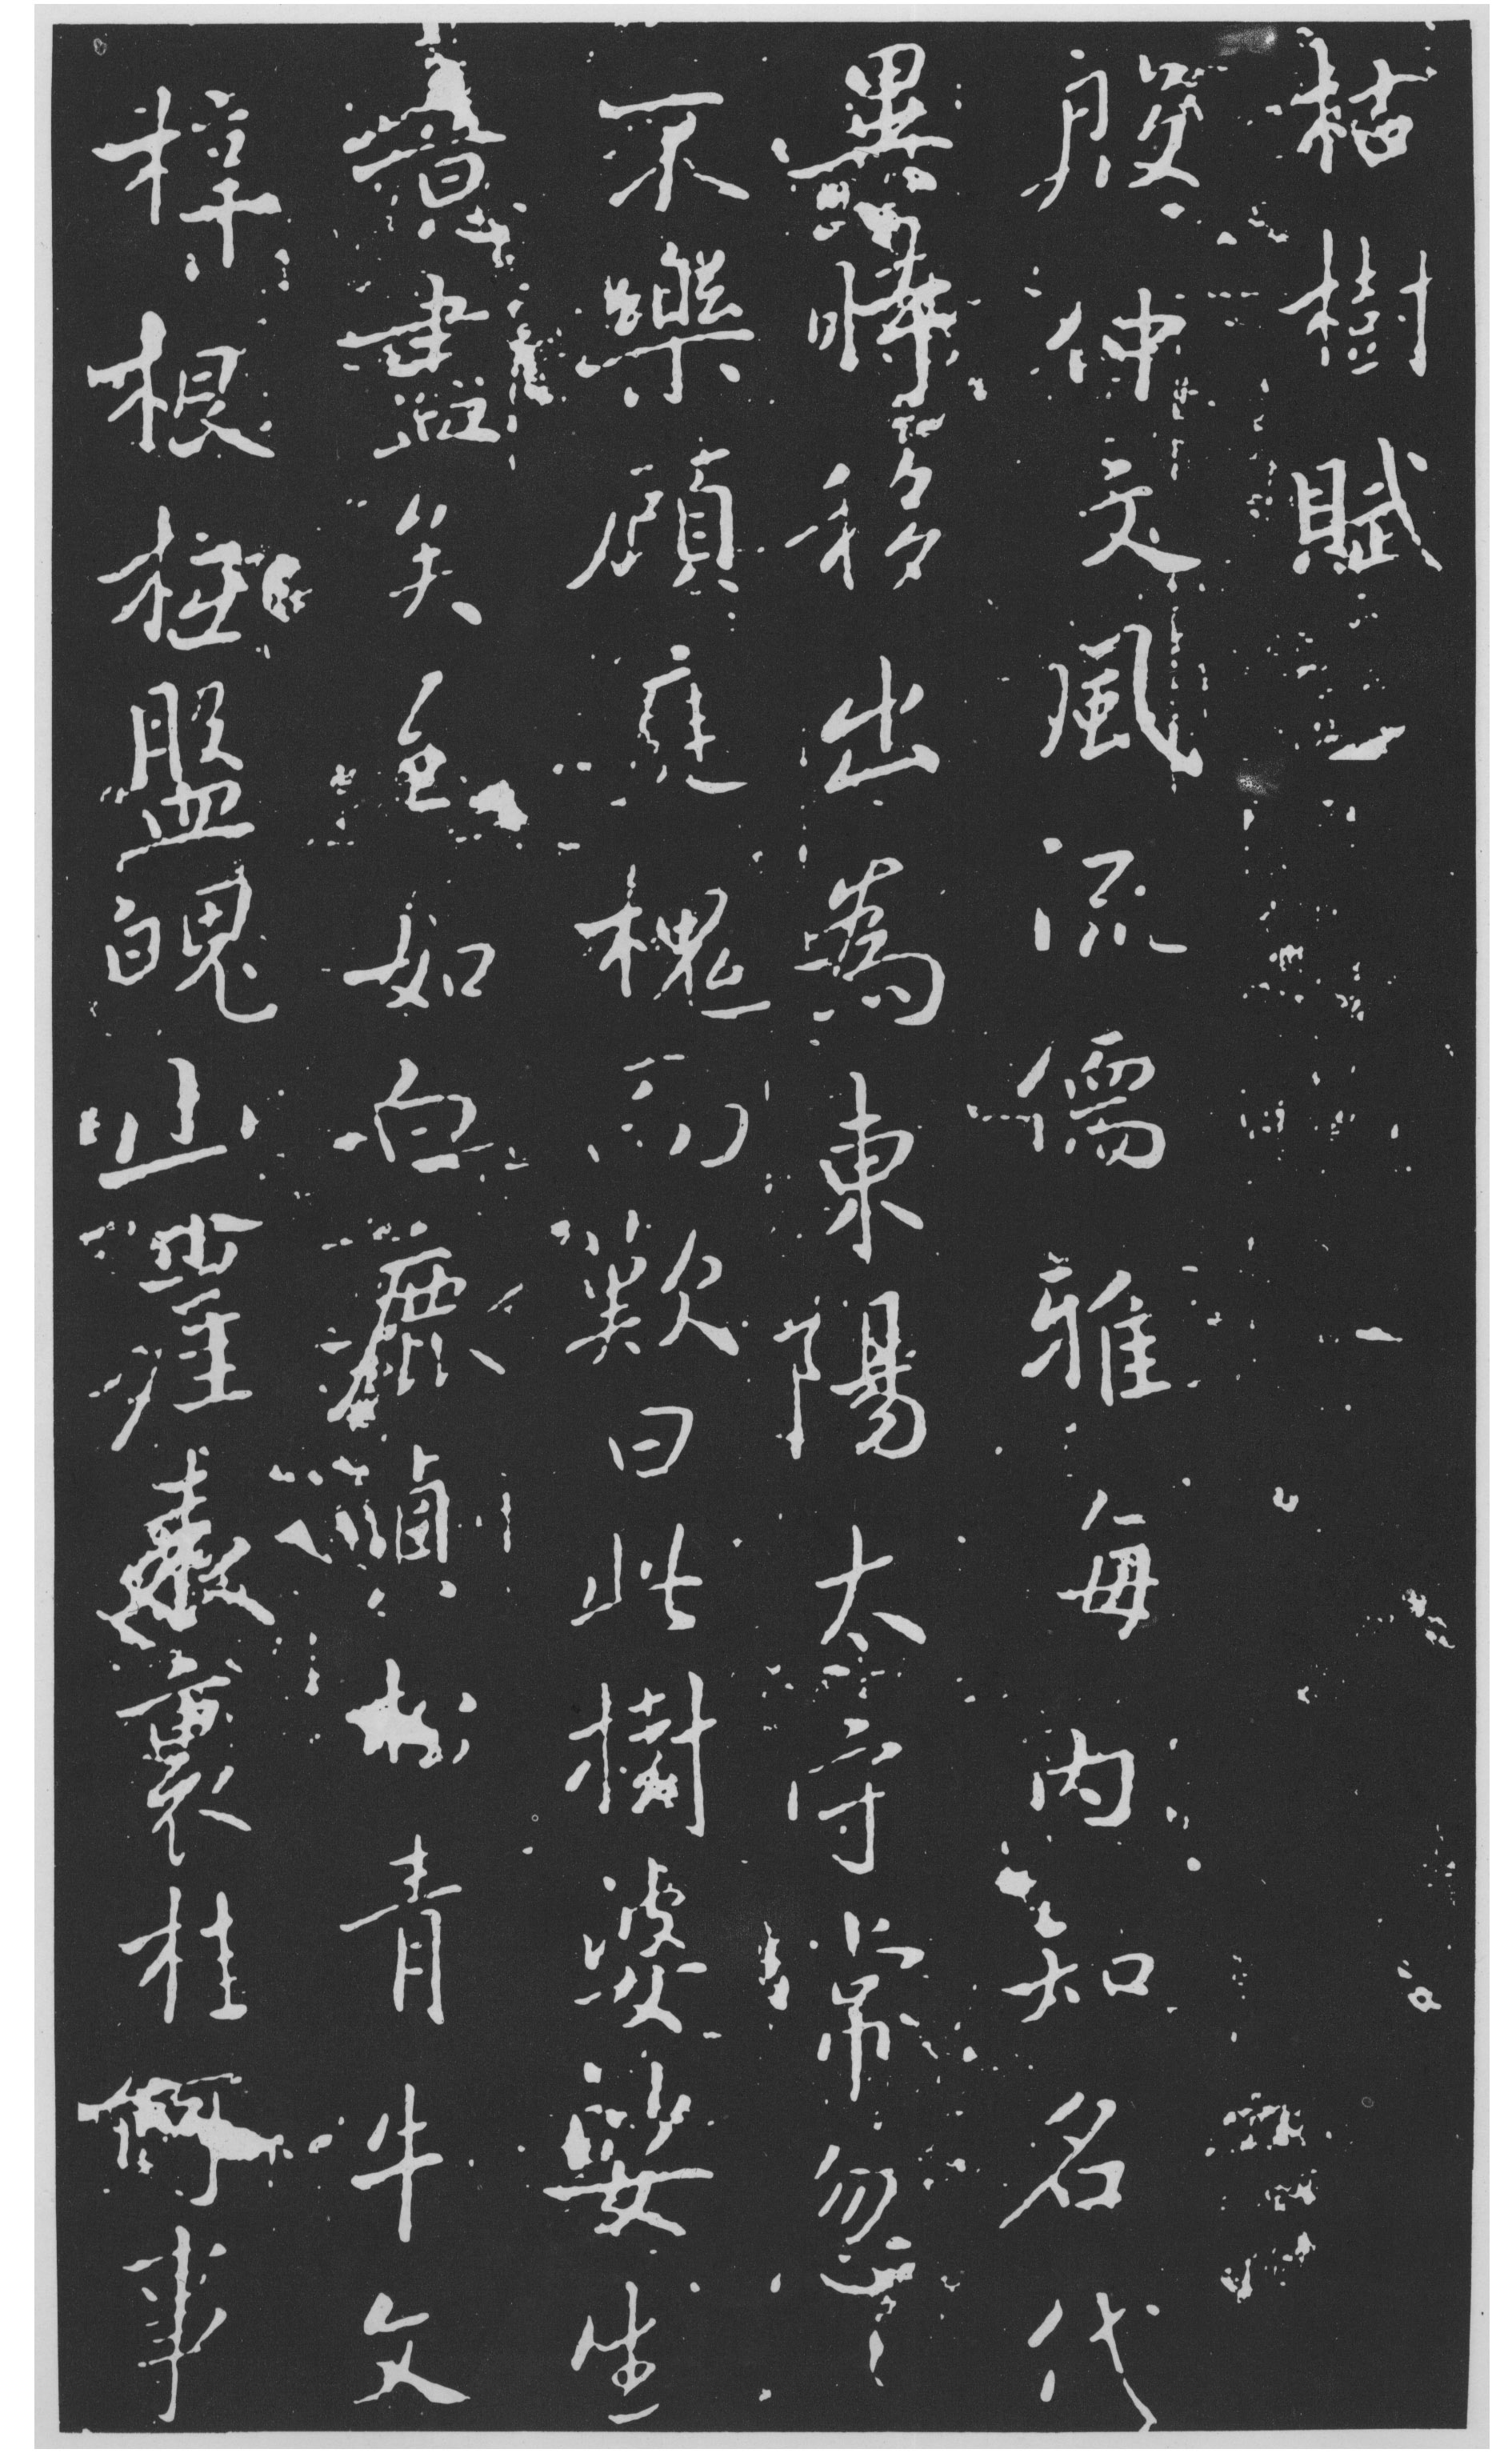 枯樹賦
殷仲文風流儒雅每内知名代
異時移出為東陽太守常忽〻
不樂顧庭槐而歎曰此樹婆娑生
意盡矣至如白鹿貞松青牛文
梓根柢盤魄山崖表裏桂何事